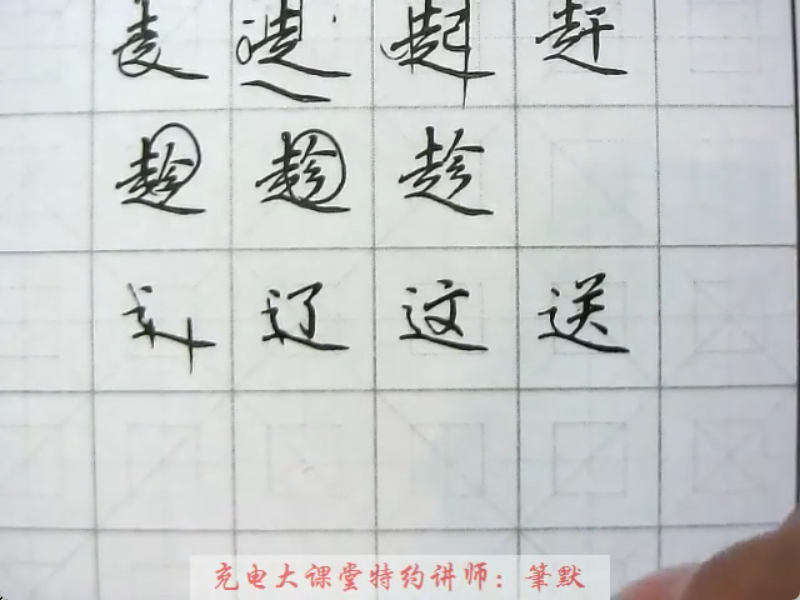 起 赶
趁 趁 趁
辶 辽 这 送
充电大课堂特约讲师：筆默